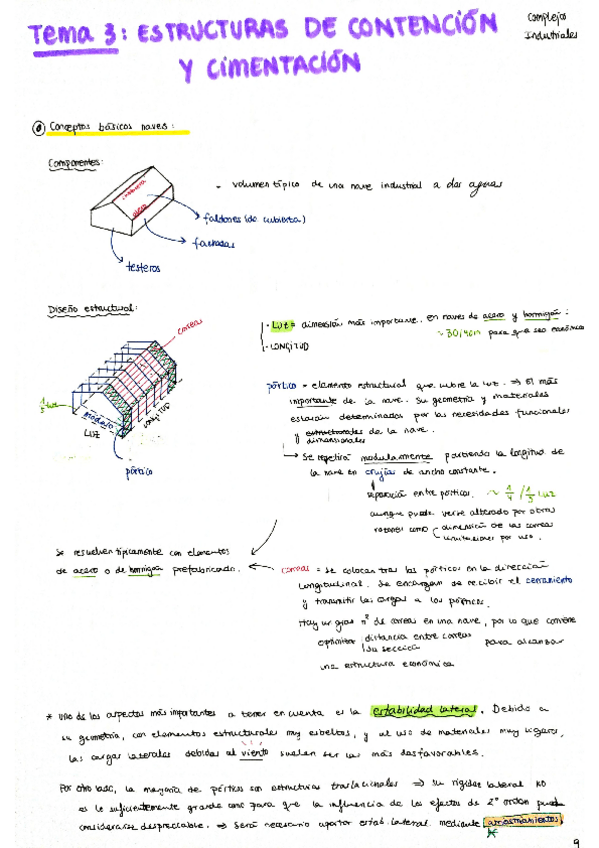 Tema 3: ESTRUCTURAS DE CONTENCIÓN
Y CIMENTACIÓN
Complejos
Industriales
Conceptos básicos naves:
Componentes:
- volumen típico de una nave industral a dos aguas
cumbrera
alero
faldones (de cubierta)
fachadas
testeros
Diseño estructural:
correas
LUZ
LONGITUD
pórtico
· LUZ = dimensión más importante. en naves de acero y hormigón:
~ 30/40m para que sea económica
· LONGITUD
pórtico = elemento estructural que cubre la luz. ⇒ El más
importante de la nave. Su geometría y materiales
estarán determinados por las necesidades funcionales
y estructurales de la nave.
dimensionales
Se repetirá modularmente partiendo la longitud de
la nave en crujías de ancho constante.
separación entre pórticos. ~ 1/4 / 1/5 luz
aunque puede verse alterado por otras
razones como dimensión de las correas
limitaciones por uso.
Se resuelven típicamente con elementos
de acero o de hormigón prefabricado.
correas = se colocan tras los pórticos en la dirección
longitudinal. Se encargan de recibir el cerramiento
y transmitir las cargas a los pórticos.
Hay un gran nº de correas en una nave, por lo que conviene
optimizar distancia entre correas para alcanzar
su sección
una estructura económica
* Uno de los aspectos más importantes a tener en cuenta es la estabilidad lateral. Debido a
su geometría, con elementos estructurales muy esbeltos, y al uso de materiales muy ligeros,
las cargas laterales debidas al viento suelen ser las más desfavorables.
Por otro lado, la mayoría de pórticos son estructuras traslacionales ⇒ su rigidez lateral NO
es lo suficientemente grande como para que la influencia de los efectos de 2º orden pueda
considerarse despreciable. ⇒ Será necesario aportar estab. lateral mediante arriostramientos
*
9